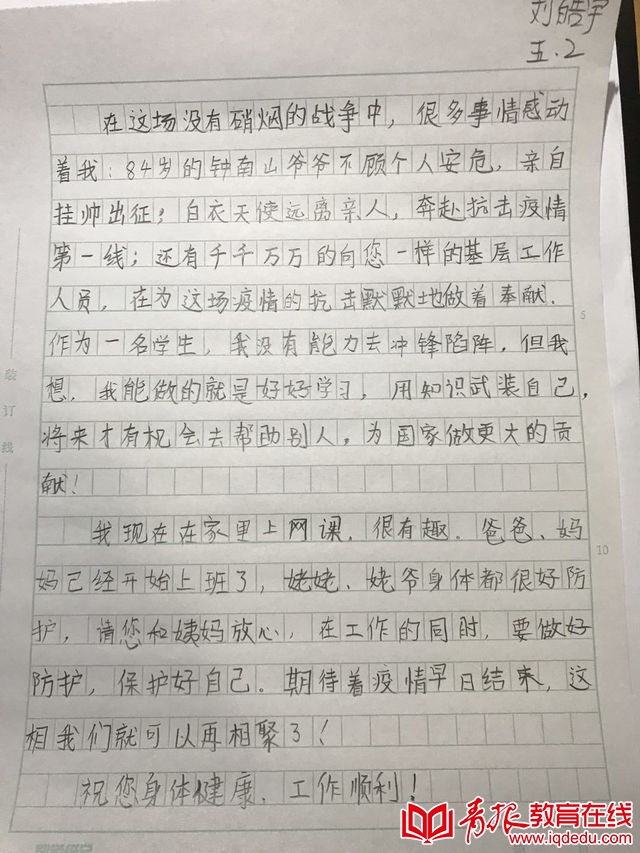 刘皓宇
五.2
在这场没有硝烟的战争中，很多事情感动
着我：84岁的钟南山爷爷不顾个人安危，亲自
挂帅出征；白衣天使远离亲人，奔赴抗击疫情
第一线；还有千千万万的向您一样的基层工作
人员，在为这场疫情的抗击默默地做着奉献．
作为一名学生，我没有能力去冲锋陷阵，但我
想，我能做的就是好好学习，用知识武装自己，
将来才有机会去帮助别人，为国家做更大的贡
献！
我现在在家里上网课，很有趣．爸爸、妈
妈已经开始上班了，姥姥、姥爷身体都很好防
护，请您和姨妈放心，在工作的同时，要做好
防护，保护好自己．期待着疫情早日结束，这
相我们就可以再相聚了！
祝您身体健康，工作顺利！
装
订
线
5
10
青报教育在线
www.iqdedu.com